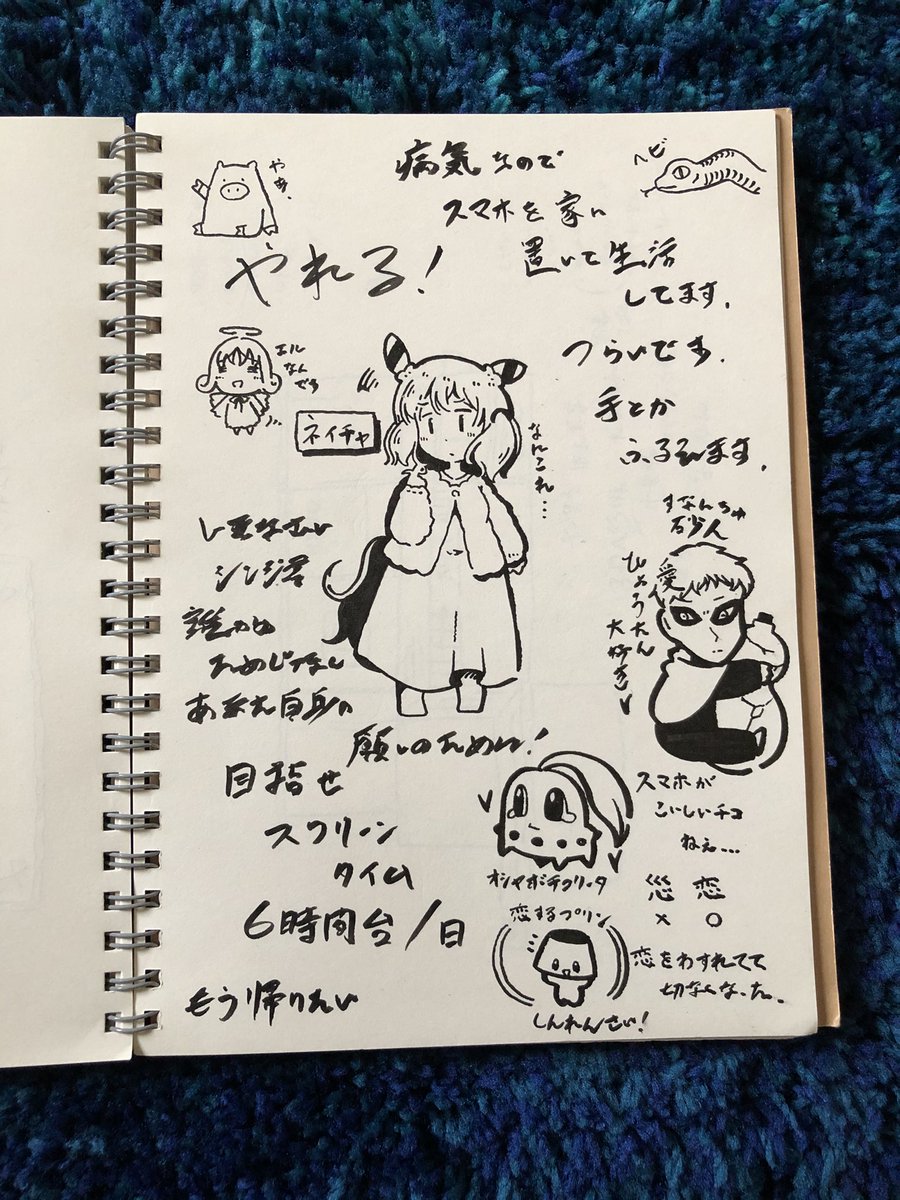 やぁ。
病気なので
スマホを家に
置いて生活
してます。
つらいです。
手とか
ふるえます。
ヘビ
やれる!
エル
なん
でろ
ネイチャ
なんこれ…
行きなさい
シンジ君
誰かの
ためじゃない
あなた自身の
願いのために!
すなんちゅ
砂人
愛
ひょうたん
大好き
目指せ
スクリーン
タイム
6時間台/日
もう帰りたい
スマホが
こいしいチコ
ねぇ…
オシャボチコリータ
恋
×
○
恋するプリン
しんれんさい!
恋をわすれてて
切なくなった。